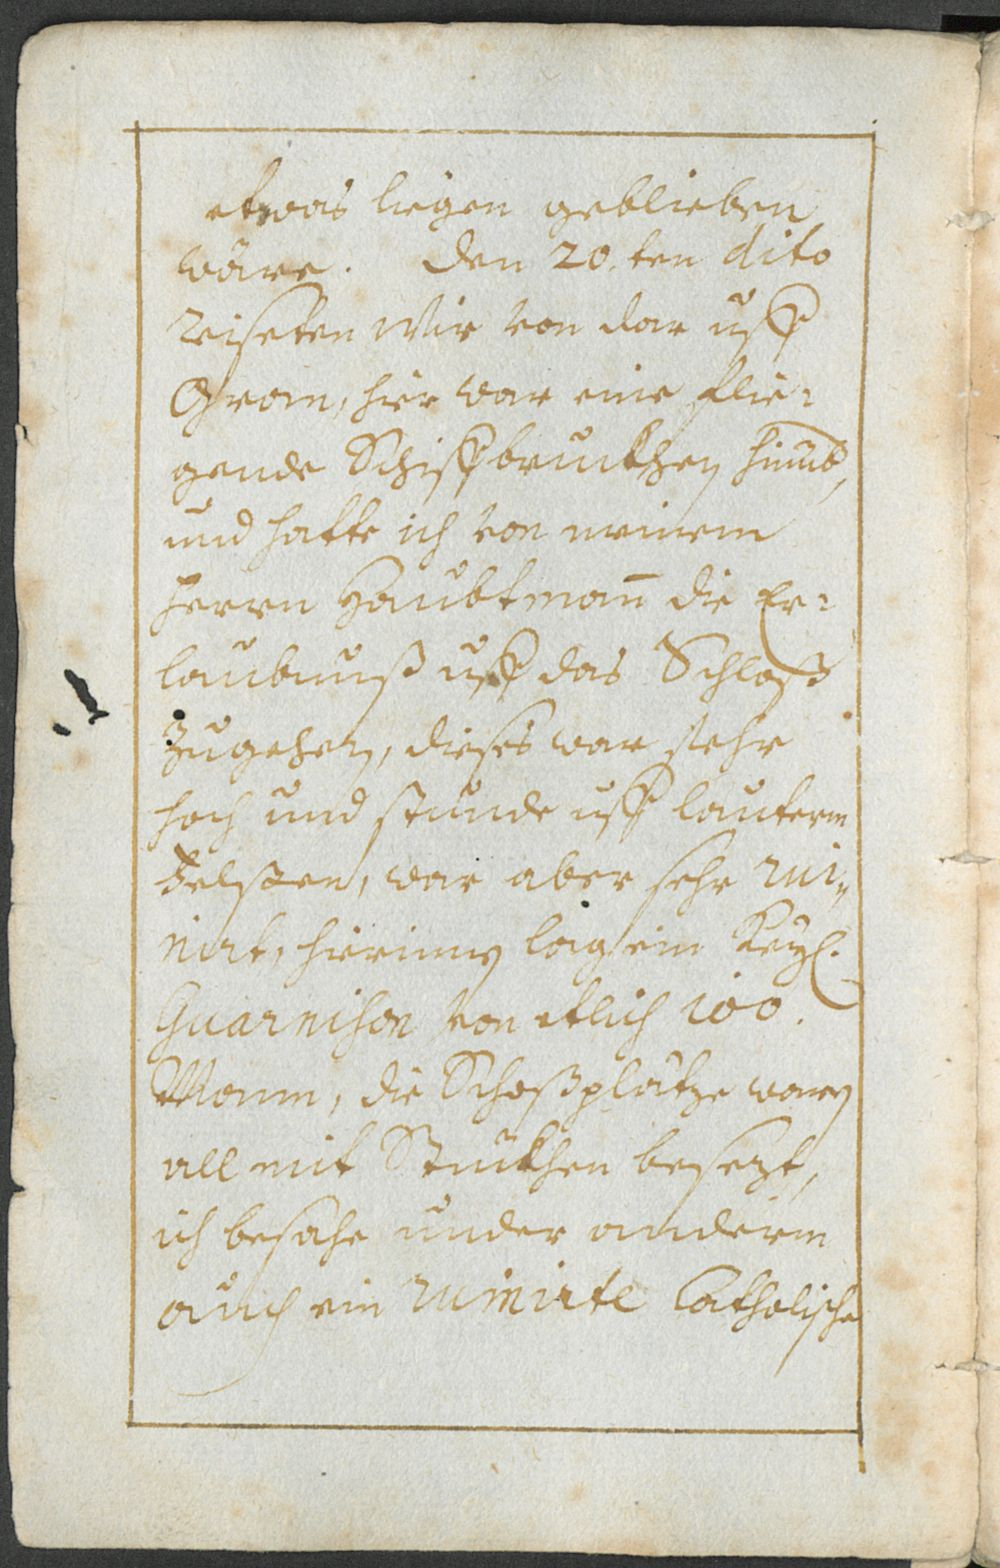 etwas liegen geblieben
wäre. Den 20.ten dito
reiseten wir von dar uff
Gran, hier war eine flie=
gende Schiffbruckhen
und hatte ich von meinem
Herrn Haubtman̅ die Er=
laubnuß uff das Schloß
zugehen, dieses war sehr
hoch und stunde uff lauterm
Felsen, war aber sehr rui=
nirt, hierinn lag ein Keyl.
Guarnison von etlich 100.
Mann, die Schoßplätze waren
all mit Stuckhen besezt,
ich besahe under anderm
auch ein ruinirte Catholische